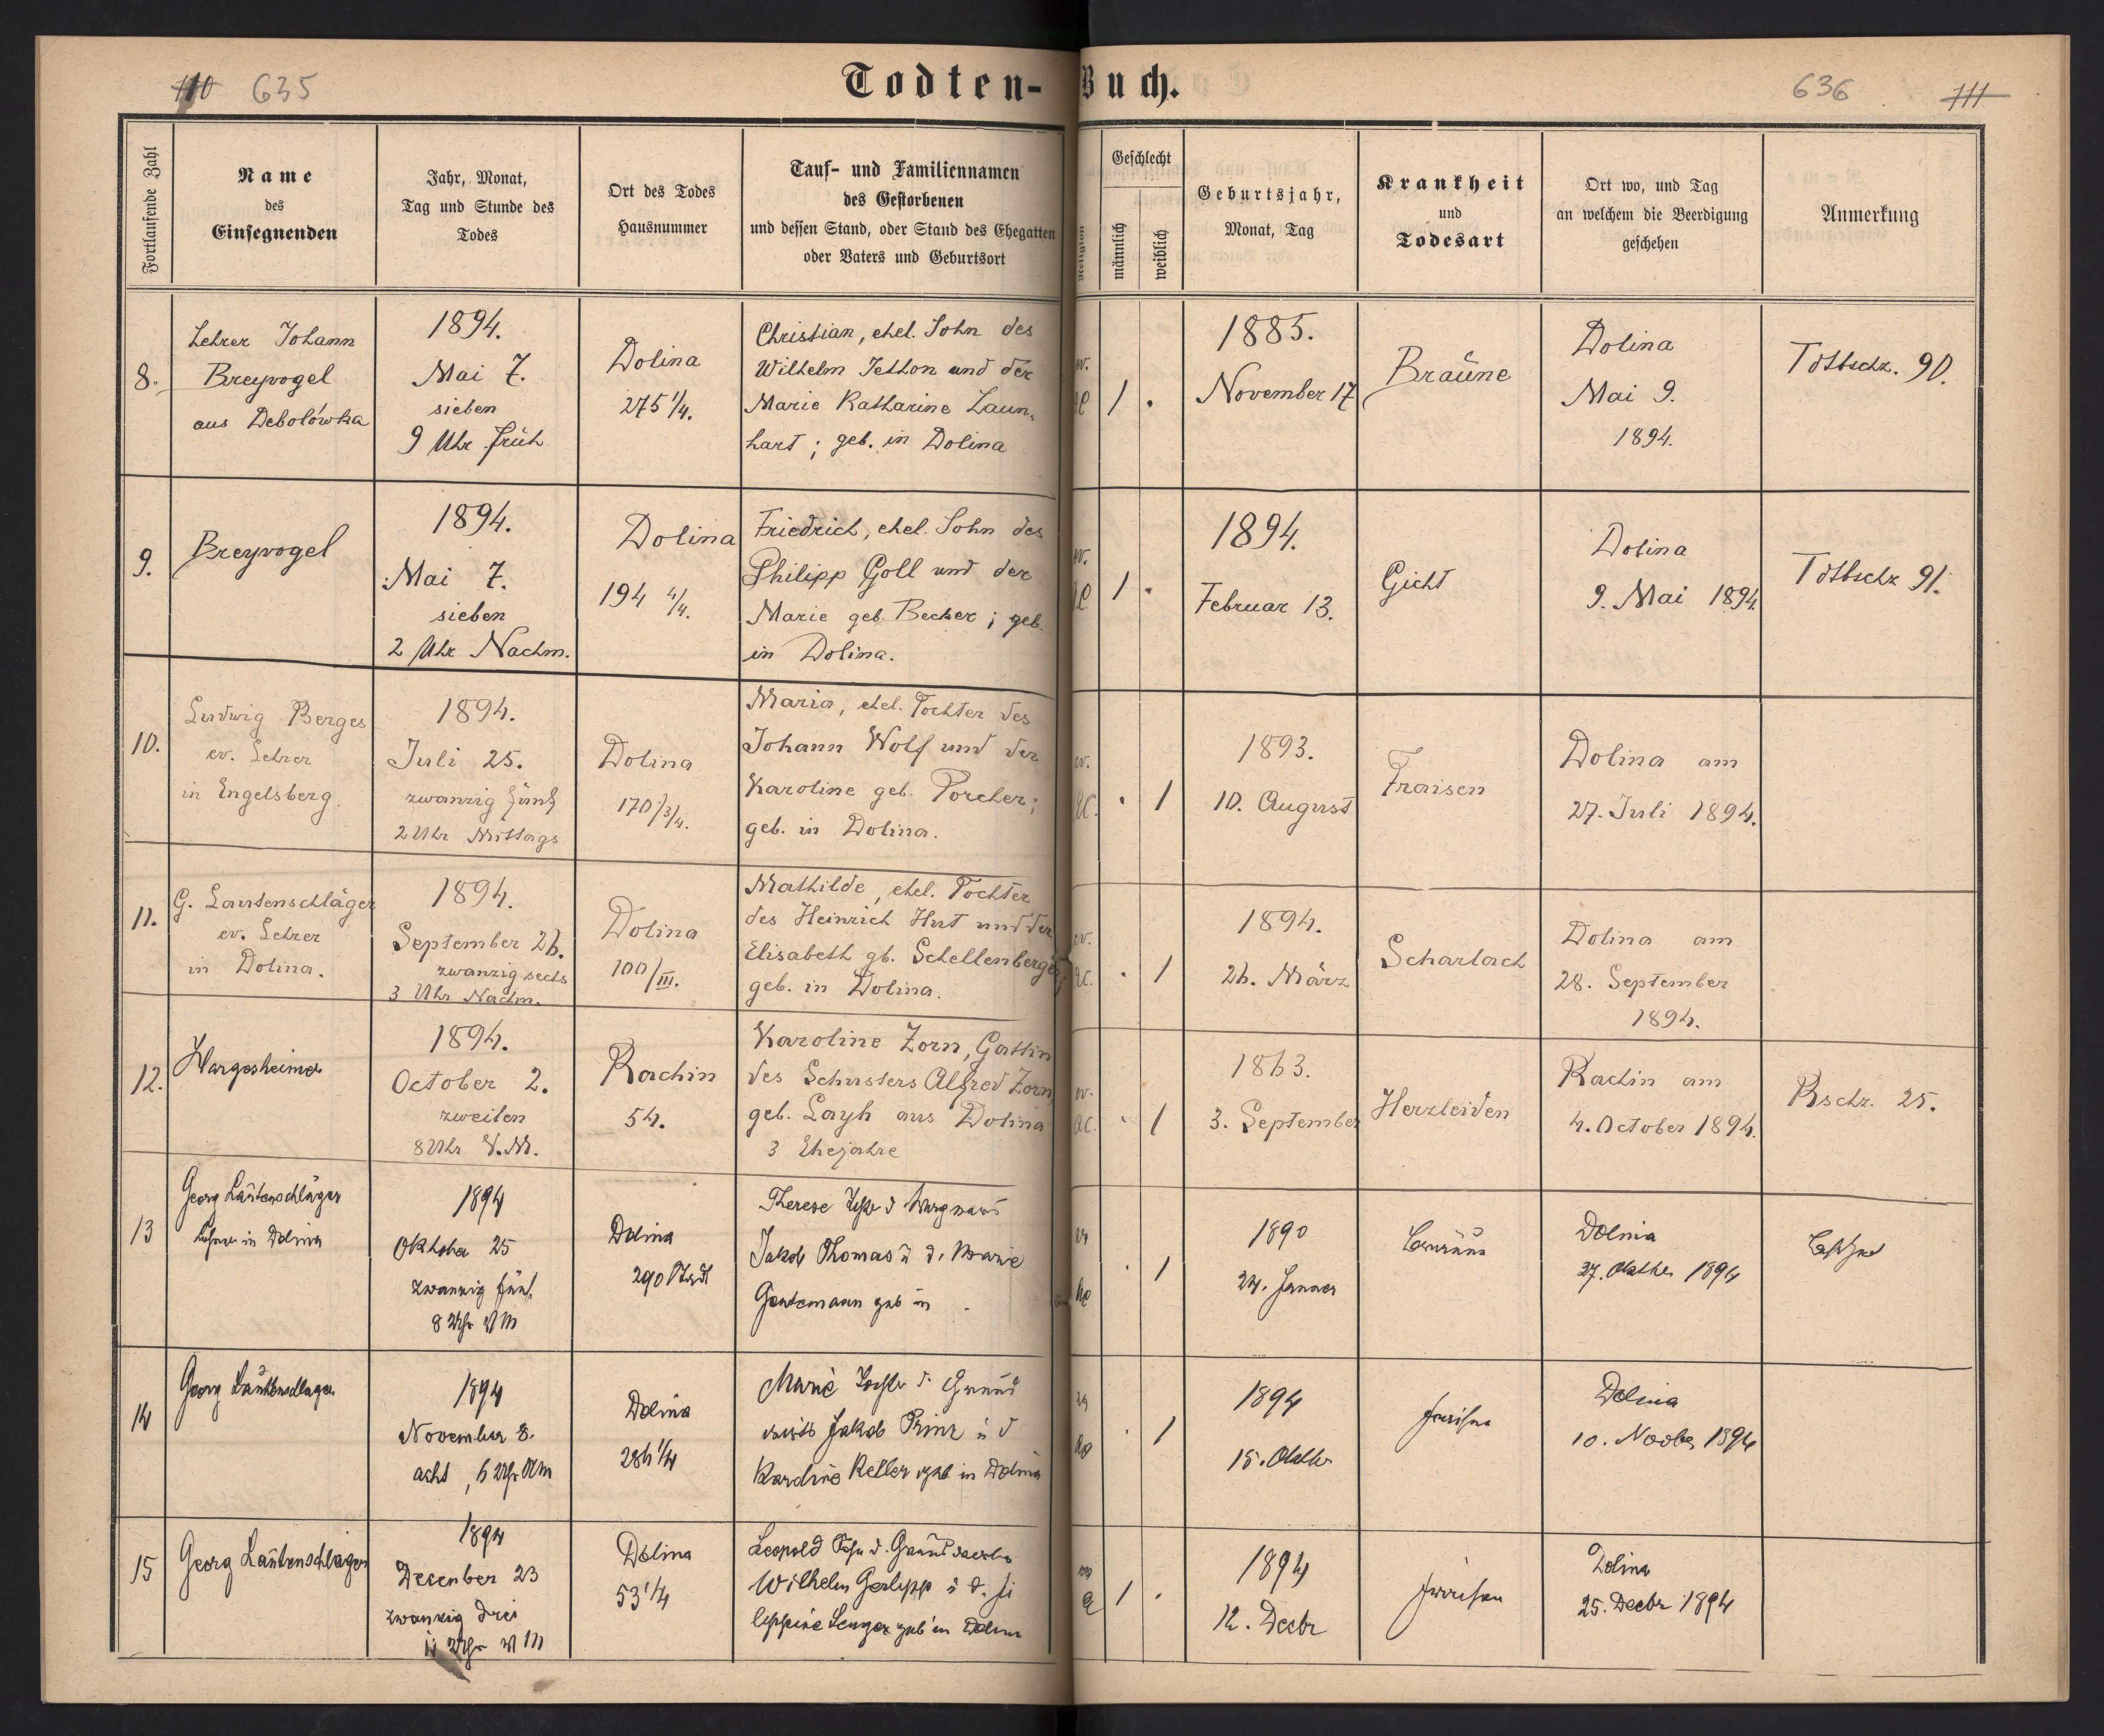 110 635
Todten-Buch.
636 111
Fortlaufende Zahl
Name
des
Einsegnenden
Jahr, Monat,
Tag und Stunde des
Todes
Ort des Todes
Hausnummer
Tauf- und Familiennamen
des Gestorbenen
und dessen Stand, oder Stand des Ehegatten
oder Vaters und Geburtsort
Religion
Geschlecht
männlich
weiblich
Geburtsjahr,
Monat, Tag
Krankheit
und
Todesart
Ort wo, und Tag
an welchem die Beerdigung
geschehen
Anmerkung
8.
Lehrer Johann
Breyvogel
aus Debolówka
1894.
Mai 7.
sieben
9 Uhr früh
Dolina
275 1/4.
Christian, ehel. Sohn des
Wilhelm Jethon und der
Marie Katharine Laun-
hart; geb. in Dolina
ev.
1 .
1885.
November 17
Bräune
Dolina
Mai 9.
1894.
Tdtbschz. 90.
9.
Breyvogel
1894.
Mai 7.
sieben
2 Uhr Nachm.
Dolina
194 4/4.
Friedrich, ehel. Sohn des
Philipp Goll und der
Marie geb. Becker; geb.
in Dolina.
ev.
1 .
1894.
Februar 13.
Gicht
Dolina
9. Mai 1894
Tdtbschz 91.
10.
Ludwig Berges
ev. Lehrer
in Engelsberg
1894.
Juli 25.
zwanzig fünf
2 Uhr Mittags
Dolina
170/3/4.
Maria, ehel. Tochter des
Johann Wolf und der
Karoline geb. Porcher;
geb. in Dolina.
ev.
AC.
. 1
1893.
10. August
Fraisen
Dolina am
27. Juli 1894.
11.
G. Lautenschläger
ev. Lehrer
in Dolina.
1894.
September 26.
zwanzig sechs
3 Uhr Nachm.
Dolina
100/III.
Mathilde, ehel. Tochter
des Heinrich Hut und der
Elisabeth gb. Schellenberger;
geb. in Dolina.
ev.
AC.
. 1
1894.
26. März
Scharlach
Dolina am
28. September
1894.
12.
Hargesheimer
1894.
October 2.
zweiten
8 Uhr V.M.
Rachin
54.
Karoline Zorn, Gattin
des Schusters Alfred Zorn,
geb. Layh aus Dolina
3 Ehejahre
ev.
AC.
. 1
1863.
3. September
Herzleiden
Rachin am
4. October 1894.
Rschz. 25.
13
Georg Lautenschläger
Lehrer in Dolina
1894
Oktober 25
zwanzig fünf
8 Uhr VM
Dolina
290 Stadt
Therese
Jakob Thomas u d. Marie
Gentemann geb in
. 1
1890
24. Januar
Bräune
Dolina
27. Oktober 1894
14
Georg Lautenschlager
1894
November 8.
acht, 6 Uhr
Dolina
286 1/4
Marie Tochter d. Grund
wirts Jakob Prinz u d
Karoline Keller geb in Dolina
. 1
1894
15. Oktbr
Fraisen
Dolina
10. Novbr 1894
15
Georg Lautenschlager
1894
Dezember 23
zwanzig drei
11 Uhr VM
Dolina
53 1/4
Leopold Sohn d. Grundwirts
Wilhelm Gerlipp u d. Fi
lippine Senger geb in Dolina
1 .
1894
12. Decbr
Fraisen
Dolina
25. Decbr 1894